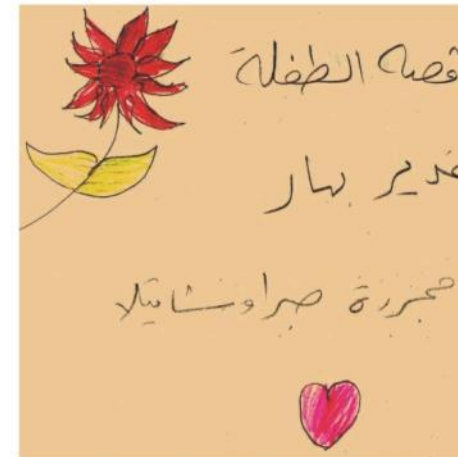 قصة الطفلة
غدير بهار
مجزرة صبرا وشاتيلا